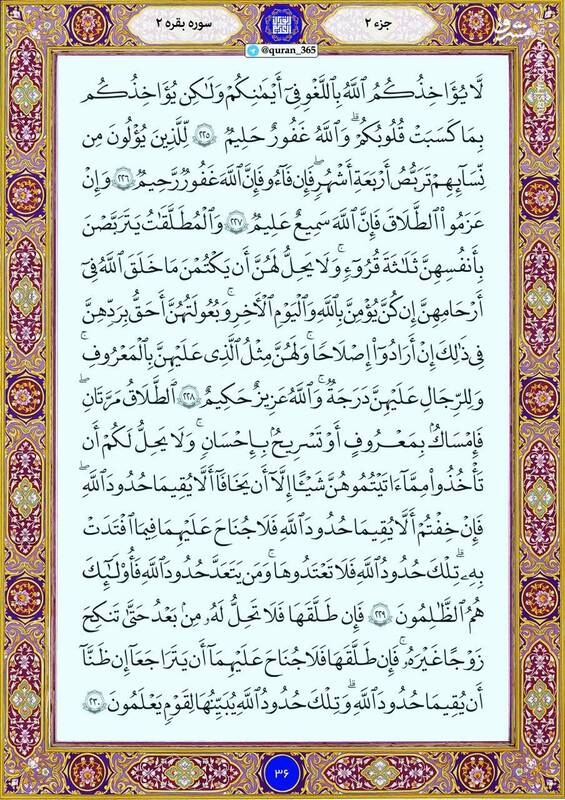 جزء ۲
سوره بقره ۲
مشرق
@quran_365
لَّا يُؤَاخِذُكُمُ ٱللَّهُ بِٱللَّغْوِ فِىٓ أَيْمَٰنِكُمْ وَلَٰكِن يُؤَاخِذُكُم
بِمَا كَسَبَتْ قُلُوبُكُمْ ۗ وَٱللَّهُ غَفُورٌ حَلِيمٌ ۲۲۵ لِّلَّذِينَ يُؤْلُونَ مِن
نِّسَآئِهِمْ تَرَبُّصُ أَرْبَعَةِ أَشْهُرٍ ۖ فَإِن فَآءُو فَإِنَّ ٱللَّهَ غَفُورٌ رَّحِيمٌ ۲۲۶ وَإِنْ
عَزَمُوا۟ ٱلطَّلَاقَ فَإِنَّ ٱللَّهَ سَمِيعٌ عَلِيمٌ ۲۲۷ وَٱلْمُطَلَّقَٰتُ يَتَرَبَّصْنَ
بِأَنفُسِهِنَّ ثَلَٰثَةَ قُرُوٓءٍ ۚ وَلَا يَحِلُّ لَهُنَّ أَن يَكْتُمْنَ مَا خَلَقَ ٱللَّهُ فِىٓ
أَرْحَامِهِنَّ إِن كُنَّ يُؤْمِنَّ بِٱللَّهِ وَٱلْيَوْمِ ٱلْءَاخِرِ ۚ وَبُعُولَتُهُنَّ أَحَقُّ بِرَدِّهِنَّ
فِى ذَٰلِكَ إِنْ أَرَادُوٓا۟ إِصْلَٰحًا ۚ وَلَهُنَّ مِثْلُ ٱلَّذِى عَلَيْهِنَّ بِٱلْمَعْرُوفِ ۚ
وَلِلرِّجَالِ عَلَيْهِنَّ دَرَجَةٌ ۗ وَٱللَّهُ عَزِيزٌ حَكِيمٌ ۲۲۸ ٱلطَّلَٰقُ مَرَّتَانِ ۖ
فَإِمْسَاكٌۢ بِمَعْرُوفٍ أَوْ تَسْرِيحٌۢ بِإِحْسَٰنٍ ۗ وَلَا يَحِلُّ لَكُمْ أَن
تَأْخُذُوا۟ مِمَّآ ءَاتَيْتُمُوهُنَّ شَيْـًٔا إِلَّآ أَن يَخَافَآ أَلَّا يُقِيمَا حُدُودَ ٱللَّهِ ۖ
فَإِنْ خِفْتُمْ أَلَّا يُقِيمَا حُدُودَ ٱللَّهِ فَلَا جُنَاحَ عَلَيْهِمَا فِيمَا ٱفْتَدَتْ
بِهِۦ ۗ تِلْكَ حُدُودُ ٱللَّهِ فَلَا تَعْتَدُوهَا ۚ وَمَن يَتَعَدَّ حُدُودَ ٱللَّهِ فَأُو۟لَٰٓئِكَ
هُمُ ٱلظَّٰلِمُونَ ۲۲۹ فَإِن طَلَّقَهَا فَلَا تَحِلُّ لَهُۥ مِنۢ بَعْدُ حَتَّىٰ تَنكِحَ
زَوْجًا غَيْرَهُۥ ۗ فَإِن طَلَّقَهَا فَلَا جُنَاحَ عَلَيْهِمَآ أَن يَتَرَاجَعَآ إِن ظَنَّآ
أَن يُقِيمَا حُدُودَ ٱللَّهِ ۗ وَتِلْكَ حُدُودُ ٱللَّهِ يُبَيِّنُهَا لِقَوْمٍ يَعْلَمُونَ ۲۳۰
۳۶